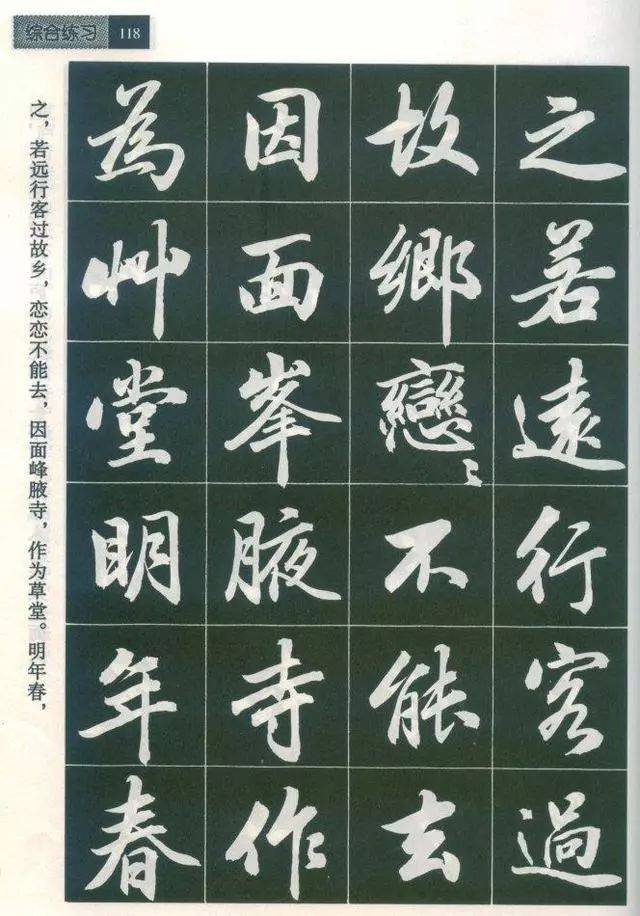 综合练习 118
之若遠行客過
故鄉戀〻不能去
因面峯腋寺作
為艸堂明年春
之，若远行客过故乡，恋恋不能去，因面峰腋寺，作为草堂。明年春，